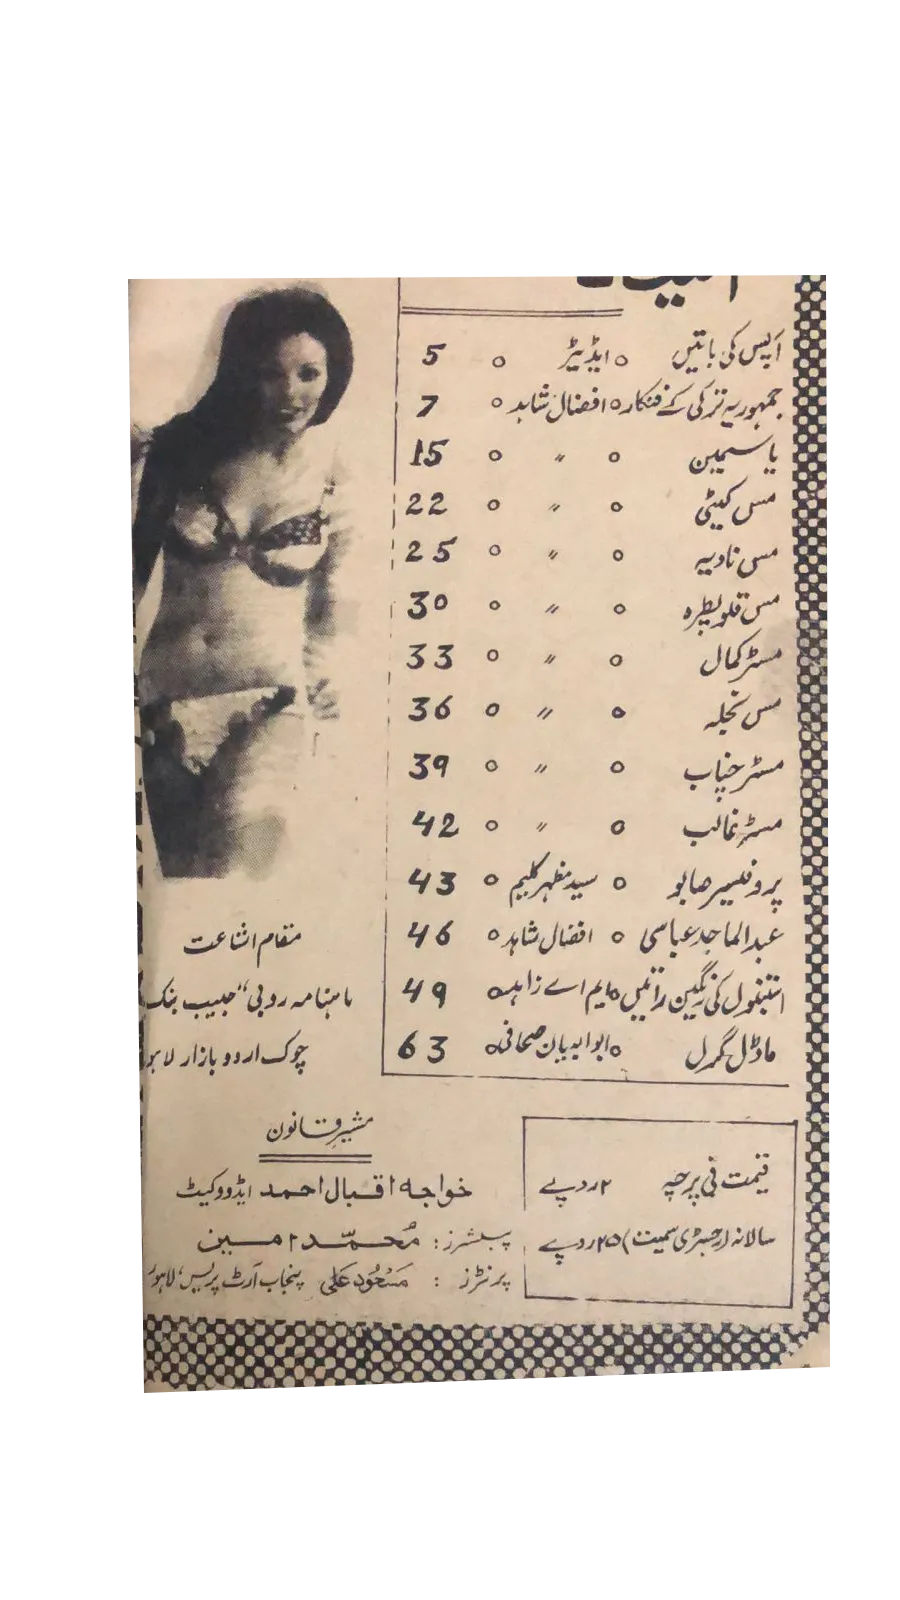 آپس کی باتیں ○ ایڈیٹر ○ 5
جمہوریہ ترکی کے فنکار ○ افضال شاہد ○ 7
یاسمین ○ 〃 ○ 15
مس کیٹی ○ 〃 ○ 22
مس نادیہ ○ 〃 ○ 25
مس قلوپطرہ ○ 〃 ○ 30
مسٹر کمال ○ 〃 ○ 33
مس نجلہ ○ 〃 ○ 36
مسٹر ○ 〃 ○ 39
مسٹر غالب ○ 〃 ○ 42
پروفیسر صابو ○ سید مظہر کلیم ○ 43
عبدالماجد عباسی ○ افضال شاہد ○ 46
استنبول کی رنگین راتیں ○ ایم اے زاہد ○ 49
ماڈل گرل ○ صحافی ○ 63
مقام اشاعت
ماہنامہ روبی "حبیب بنک
چوک اردو بازار
مشیر قانون
خواجہ اقبال احمد ایڈووکیٹ
پبلشرز: محمد امین
پرنٹرز: مسعود علی پنجاب آرٹ پریس، لاہور
قیمت فی پرچہ ۲ روپے
سالانہ (رجسٹری سمیت) ۲۵ روپے